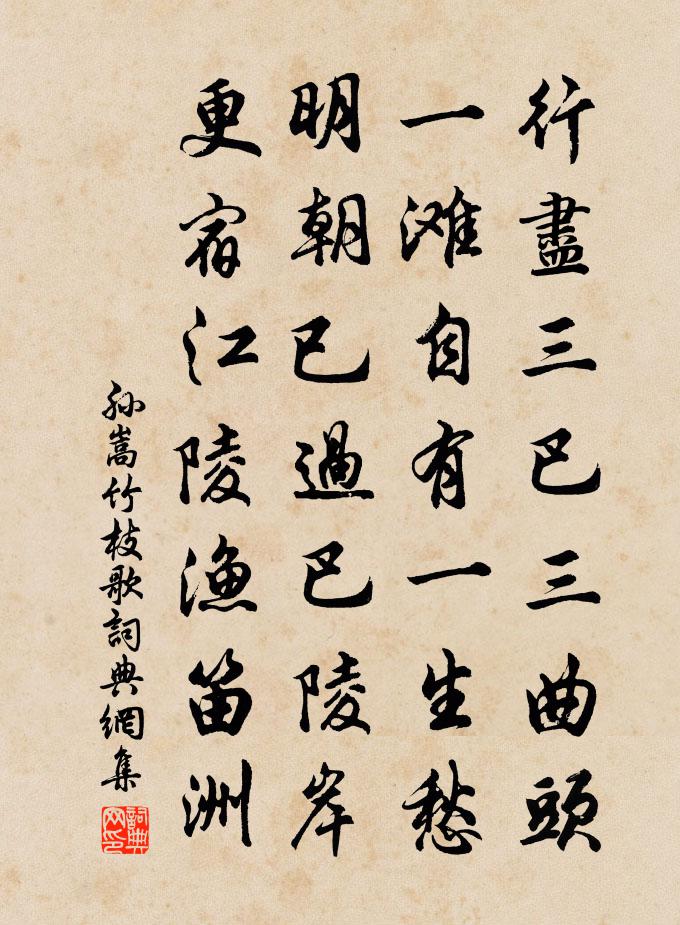 行盡三巴三曲頭
一滩自有一生愁
明朝已過巴陵岸
更宿江陵漁笛洲
孙嵩竹枝歌詞典網集
詞典网印